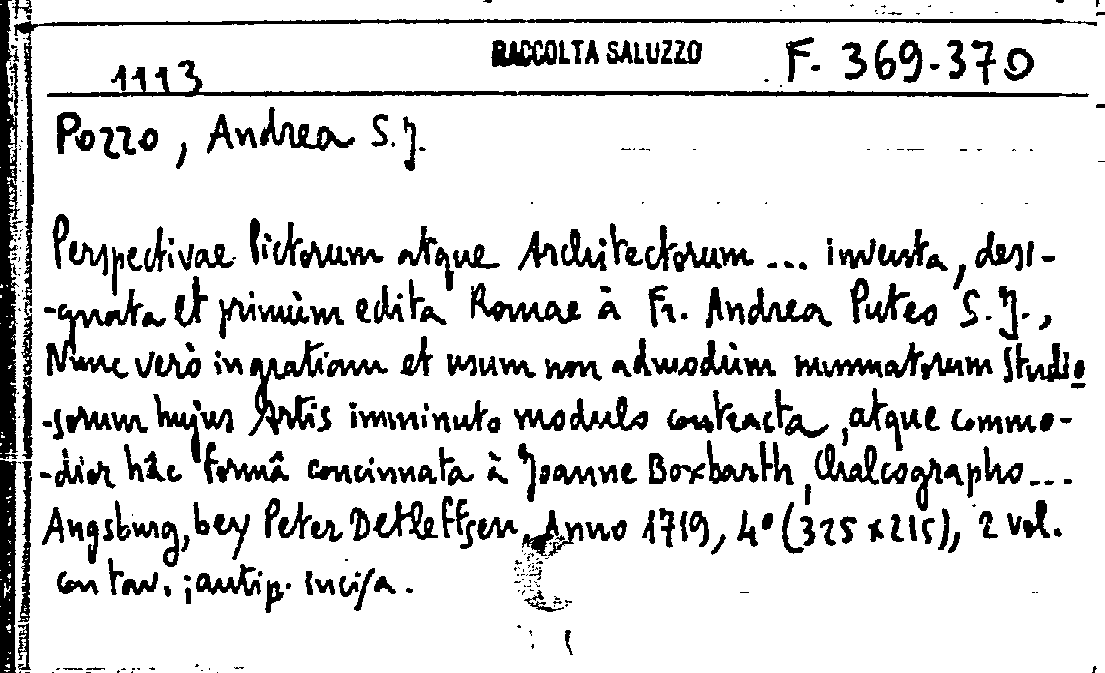 RACCOLTA SALUZZO
1113 F. 369-370
Pozzo, Andrea S.J.
Perspectivae Pictorum atque Architectorum ... inventa, desi-
-gnata et primùm edita Romae à Fr. Andrea Puteo S.J.,
Nunc verò in gratiam et usum non admodùm nummatorum Studio
-sorum hujus Artis imminuto modulo contracta, atque commo-
-dior hâc formâ concinnata à Joanne Boxbarth, Chalcographo ...
Angsburg, bey Peter Detleffsen, Anno 1719, 4° (325 x 215), 2 vol.
con tav.; antip. incisa.